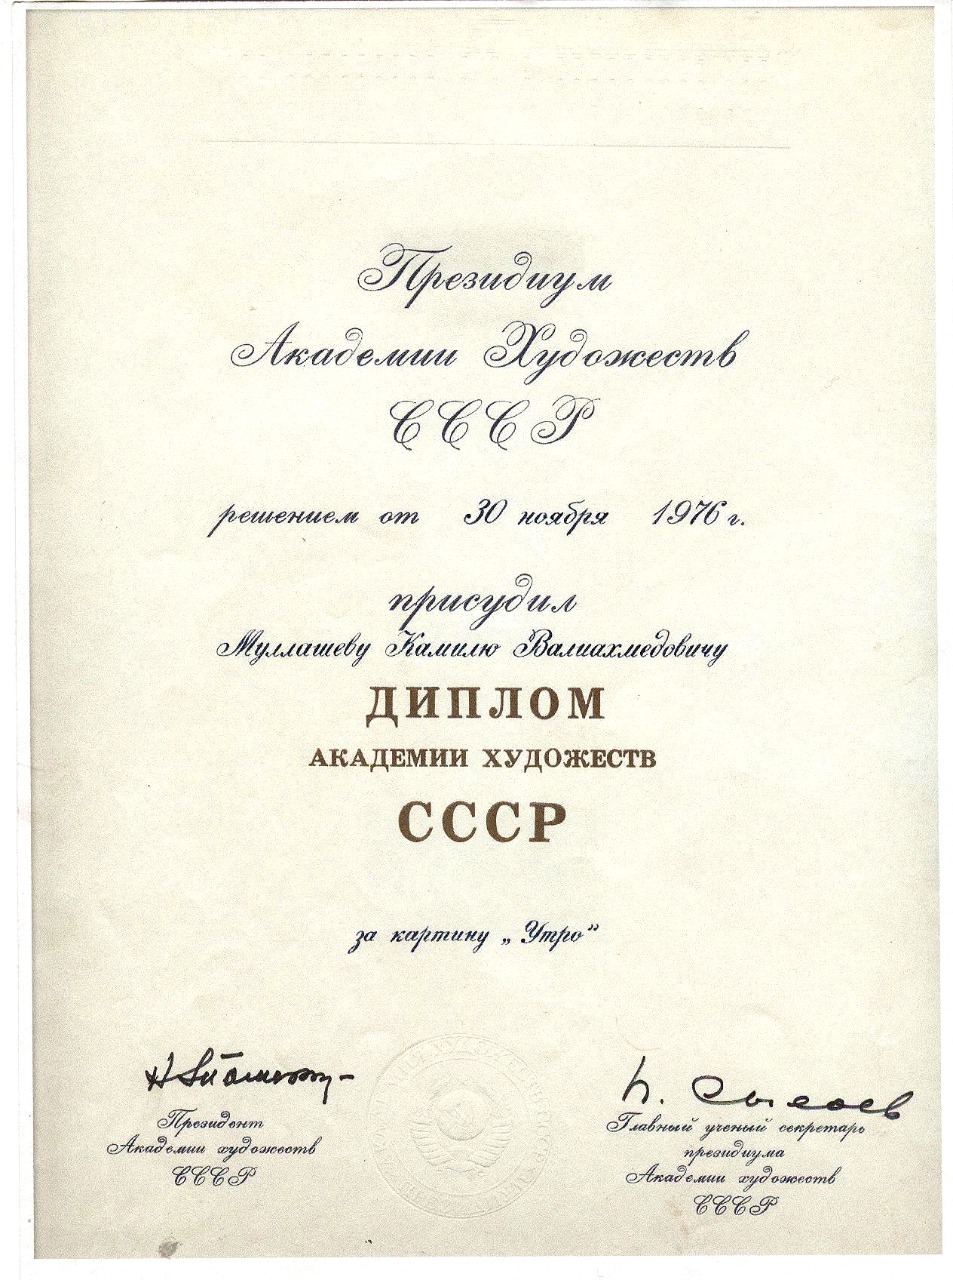 Президиум
Академии Художеств
СССР
решением от 30 ноября 1976 г.
присудил
Муллашеву Камилю Валиахмедовичу
ДИПЛОМ
АКАДЕМИИ ХУДОЖЕСТВ
СССР
за картину „Утро”
Президент
Академии художеств
СССР
П. Сысоев
Главный ученый секретарь
президиума
Академии художеств
СССР